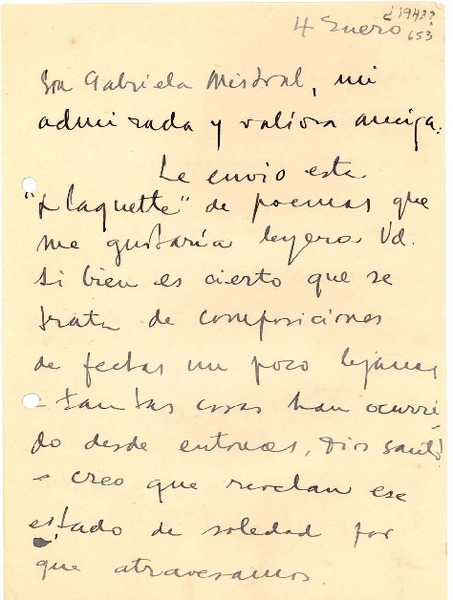 ¿1943?
4 Enero 653
Sra Gabriela Mistral, mi
admirada y valiosa amiga:
Le envio esta
"Plaquette" de poemas que
me gustaría leyera Vd.
Si bien es cierto que se
trata de composiciones
de fechas un poco lejanas
- tantas cosas han ocurri
do desde entonces, Dios santo!
- creo que revelan ese
estado de soledad por
que atravesamos.